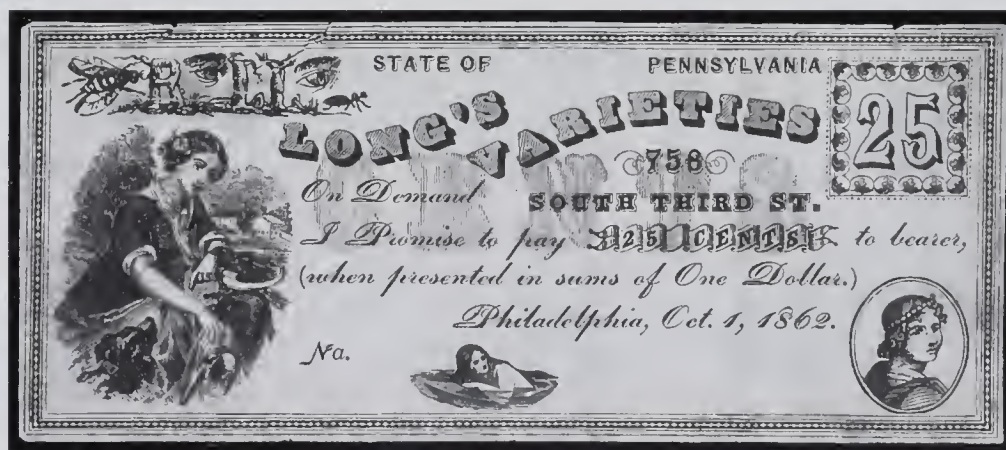 STATE OF PENNSYLVANIA
LONG'S VARIETIES
25
758
On Demand SOUTH THIRD ST.
I Promise to pay 25 CENTS to bearer,
(when presented in sums of One Dollar.)
Philadelphia, Oct. 1, 1862.
No.